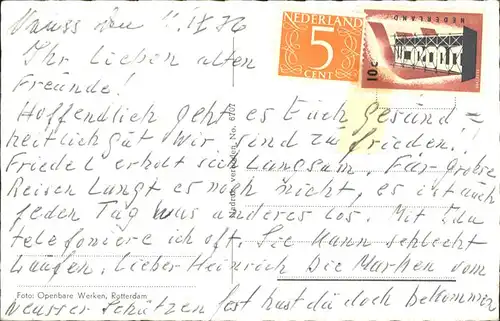 Neuss den 11. IX 76
Ihr Lieben alten
Freunde!
Hoffendlich geht es Euch gesund=
heitlich gut wir sind zufrieden!!
Friedel erholt sich Langsam. Für große
Reisen Langt es noch nicht, es ist auch
jeden Tag was anderes los. Mit Ida
telefoniere ich oft. Sie kann schlecht
Laufen. Lieber Heinrich Die Marken vom
neusser Schützenfest hast du doch bekommen
NEDERLAND
5
CENT
NEDERLAND
10c
Nadruk verboden. No. 6707
Foto: Openbare Werken, Rotterdam